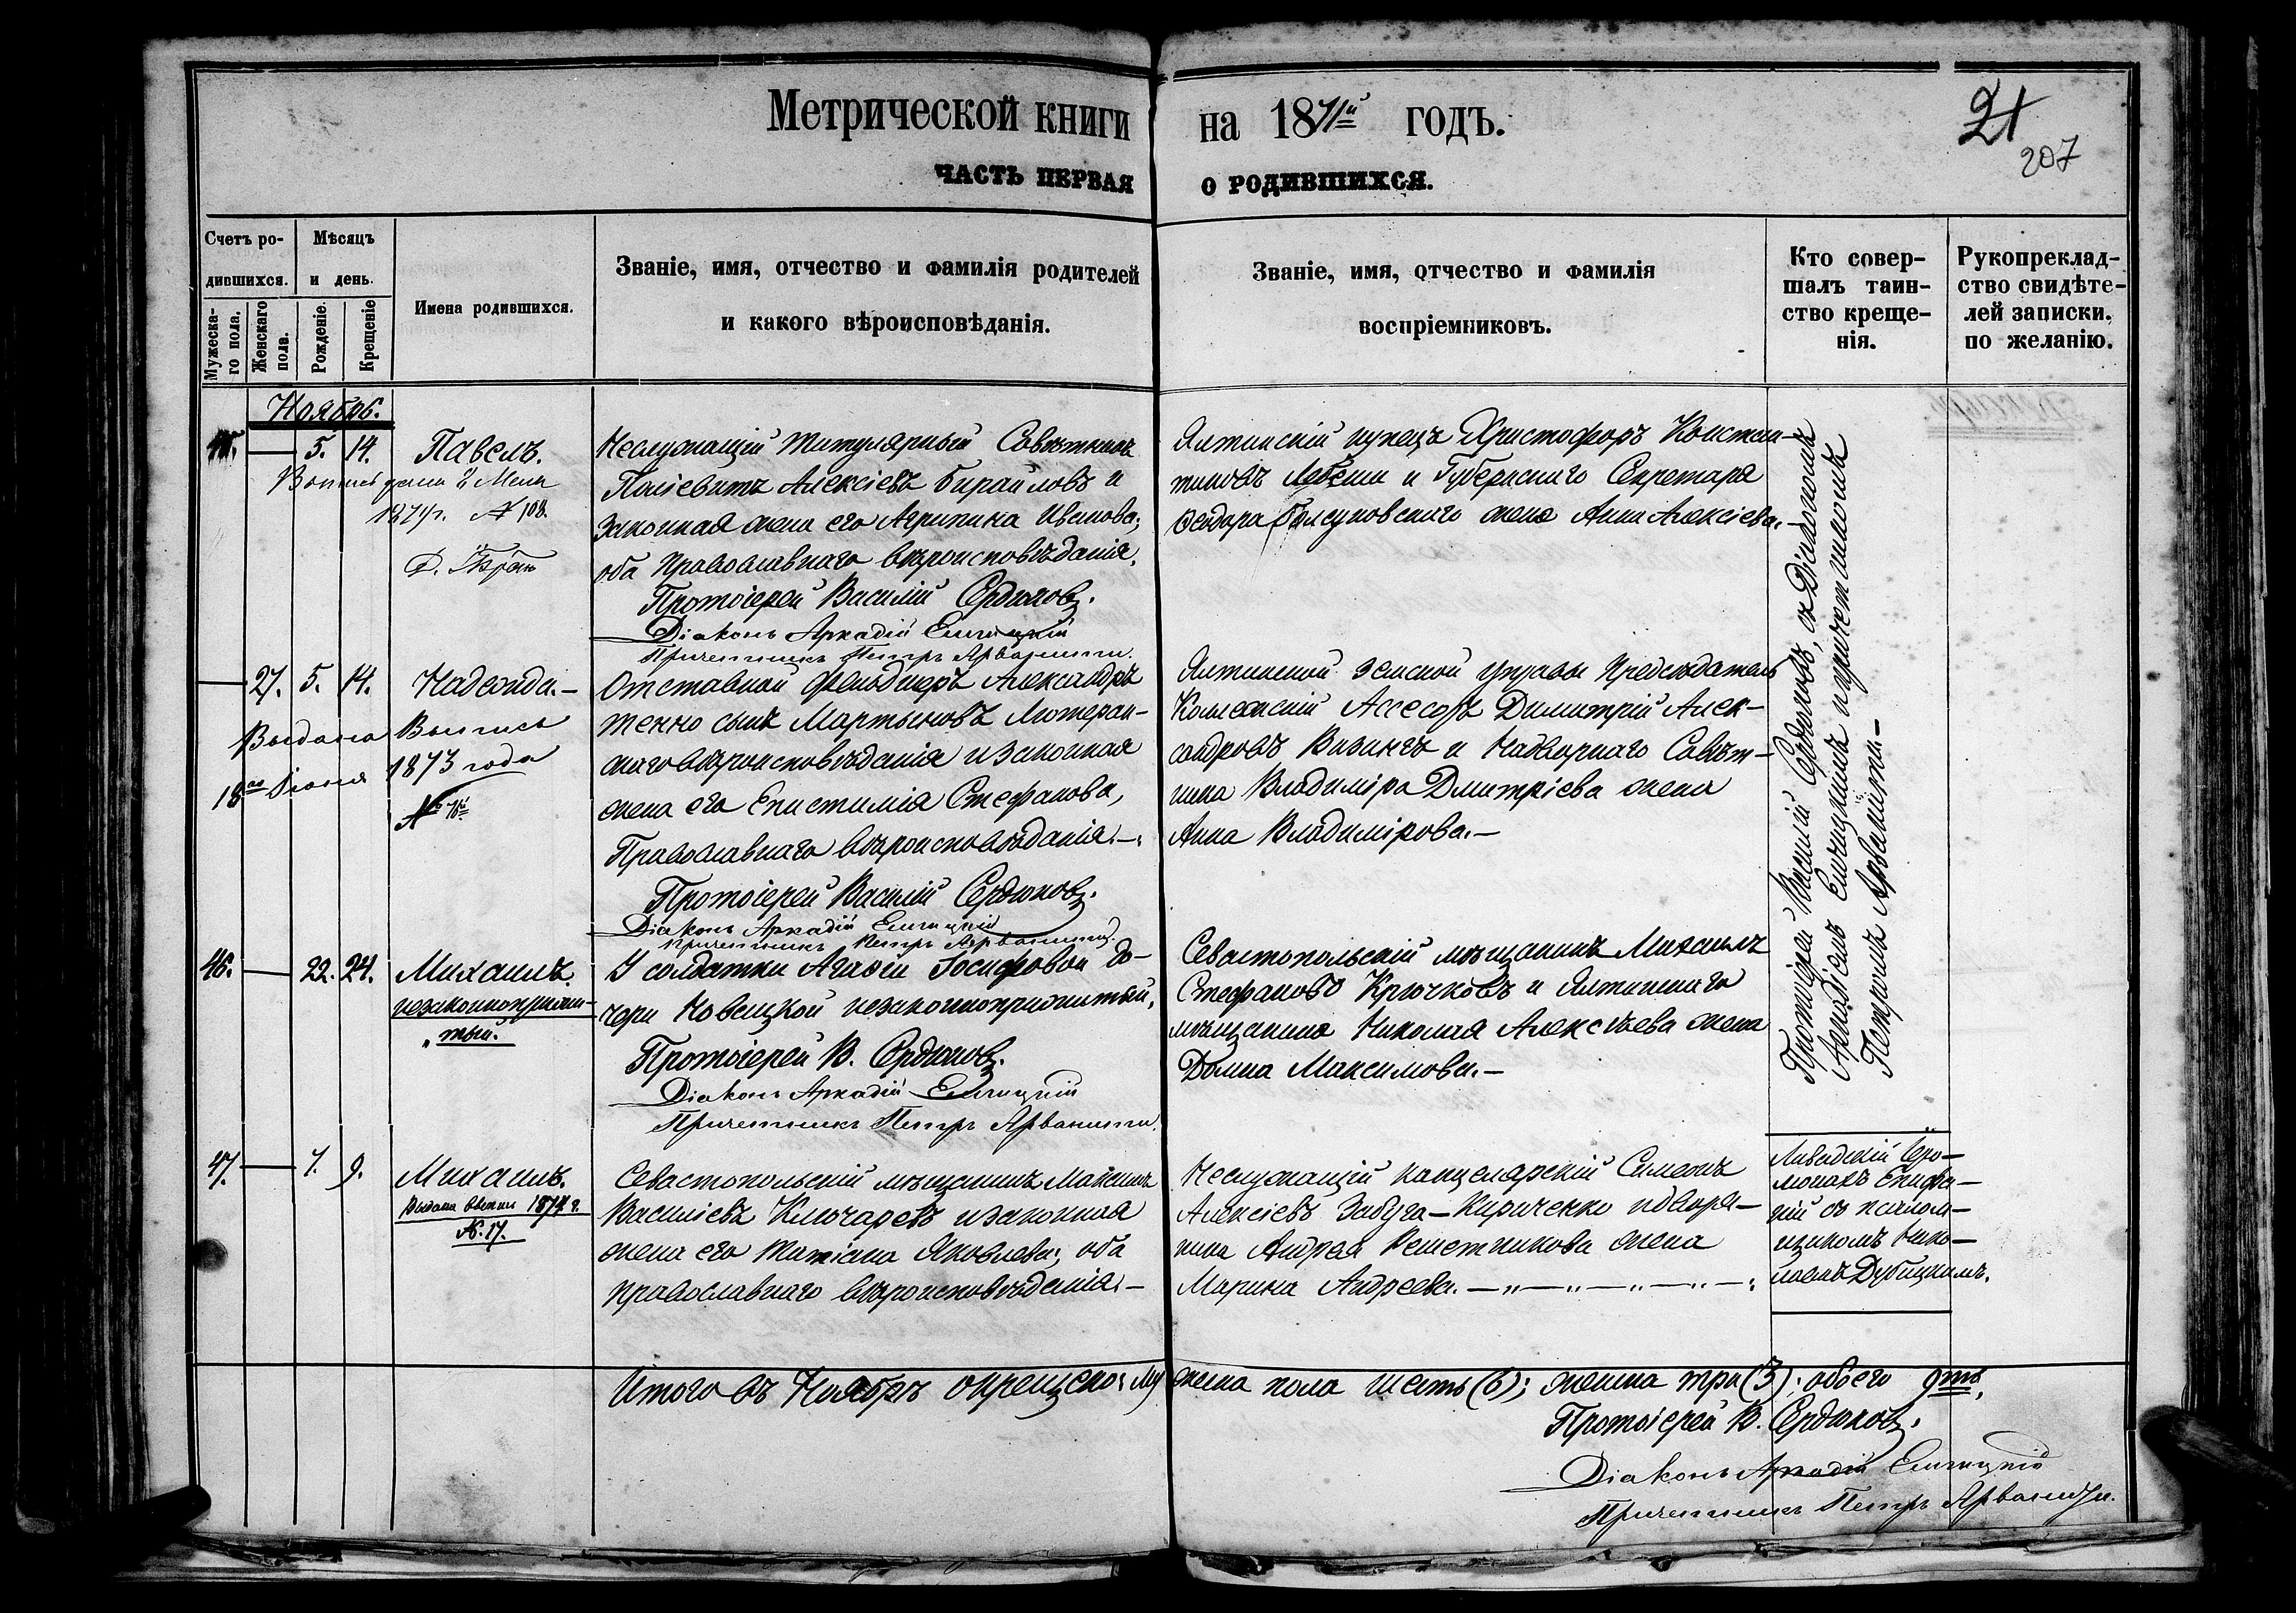 Метрической книги на 1871й годъ.
21
207
ЧАСТЬ ПЕРВАЯ О РОДИВШИХСЯ.
Счетъ ро-
дившихся.
Мужеска-
го пола.
Женскаго
пола.
Мѣсяцъ
и день.
Рожденіе.
Крещеніе
Имена родившихся.
Званіе, имя, отчество и фамилія родителей
и какого вѣроисповѣданія.
Званіе, имя, отчество и фамилія
воспріемниковъ.
Кто совер-
шалъ таин-
ство креще-
нія.
Рукоприклад-
ство свидѣте-
лей записки.
по желанію.
Ноябрь.
45. — 5. 14.
Павелъ.
1871г. № 108.
Неслужащій титулярный Совѣтникъ
Алексіевъ Бираиловъ и
законная жена его Агрипина Иванова;
оба Православнаго вѣроисповѣданія.
Протоіерей Василій Сердюковъ.
Діаконъ Аркадій Елчицкій
Причетникъ Петръ Арванити.
Ялтинскій купецъ Христофоръ Констан-
тиновъ и Губернскаго Секретаря
Ѳеодора жена Анна Алексіева.
— 27. 5. 14.
Надежда. —
Выдана Выпись
18го Іюня 1873 года
№
Отставной Фельдшеръ Александръ
сынъ Мартыновъ Лютеран-
скаго вѣроисповѣданія и законная
жена его Епистимія Стефанова,
Православнаго вѣроисповѣданія. —
Протоіерей Василій Сердюковъ.
Діаконъ Аркадій Елчицкій
Причетникъ Петръ Арванити.
Ялтинской земской управы Предсѣдатель
Коллежскій Ассесоръ Димитрій Алек-
сандровъ и Надворнаго Совѣт-
ника Владиміра Дмитріева жена
Анна Владимірова. —
46. — 22. 24.
Михаилъ.
незаконноприжи-
„тый.
У солдатки Агаѳіи Іосифовой до-
чери Новецкой незаконноприжитый.
Протоіерей В. Сердюковъ.
Діаконъ Аркадій Елчицкій
Причетникъ Петръ Арванити.
Севастопольскій мѣщанинъ Михаилъ
Стефановъ Крючковъ и Ялтинскаго
мѣщанина Николая Алексѣева жена
Домна Максимова. —
Протоіерей Василій Сердюковъ, съ Діакономъ
Аркадіемъ Елчицкимъ и причетникомъ
Петромъ Арванити —
47. — 7. 9.
Михаилъ.
Выдана выпись 1874 г.
№. 17.
Севастопольскій мѣщанинъ Максимъ
Василіевъ Ключаревъ и законная
жена его Татіана Яковлева; оба
православнаго вѣроисповѣданія. —
Неслужащій канцелярскій Симеонъ
Алексіевъ Забуга-Кириченко и дворя-
нина Андрея Решетникова жена
Марина Андреева. — „ — „ — „ — „ — .
Ливадскій Іеро-
монахъ Епифа-
ній съ псалом-
щикомъ Нико-
лаемъ Дубицкимъ.
Итого въ Ноябрѣ окрещено: мужеска пола шесть (6); женска три (3); обоего 9ть,
Протоіерей В. Сердюковъ.
Діаконъ Аркадій Елчицкій
Причетникъ Петръ Арванити.